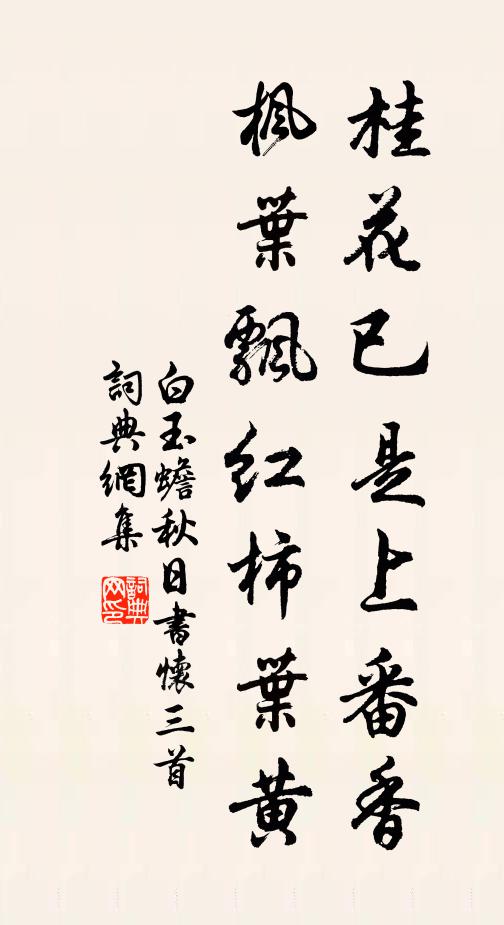 桂花已是上番香
楓葉飄紅柿葉黃
白玉蟾秋日書懷三首
詞典網集
詞典網印